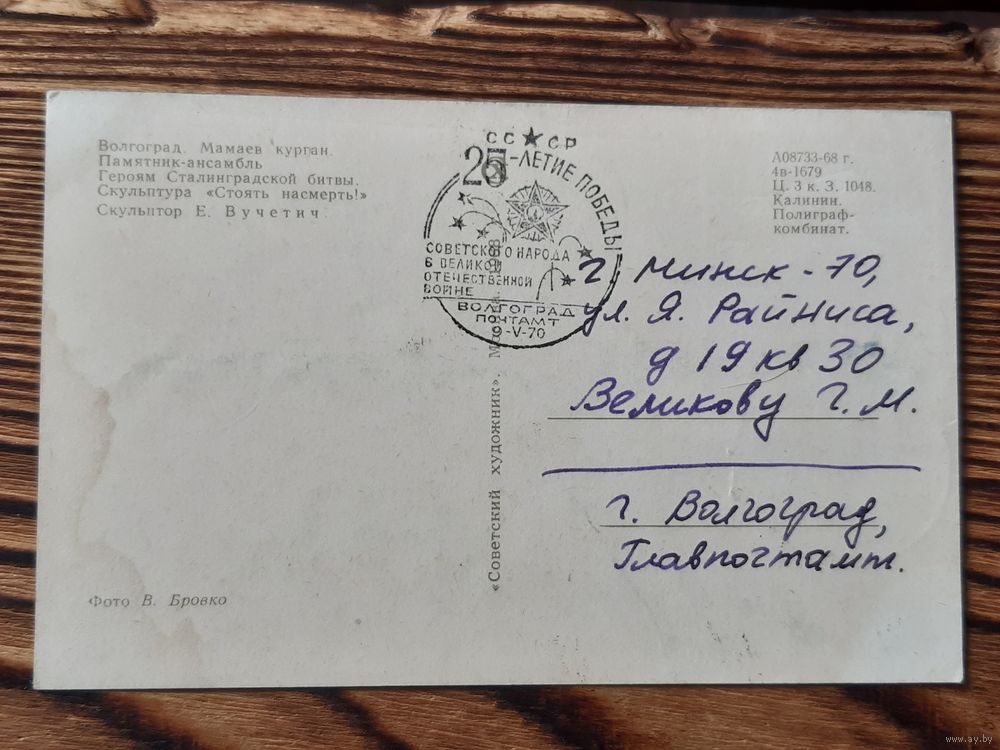 Волгоград. Мамаев курган.
Памятник-ансамбль
Героям Сталинградской битвы.
Скульптура «Стоять насмерть!»
Скульптор Е. Вучетич
СССР
25-ЛЕТИЕ ПОБЕДЫ
СОВЕТСКОГО НАРОДА
В ВЕЛИКОЙ
ОТЕЧЕСТВЕННОЙ
ВОЙНЕ
ВОЛГОГРАД
ПОЧТАМТ
9-V-70
А08733-68 г.
4в-1679
Ц. 3 к. З. 1048.
Калинин.
Полиграф-
комбинат.
г Минск-70,
ул. Я. Райниса,
д 19 кв 30
Великову Г. М.
г. Волгоград,
Главпочтамт.
«Советский художник». Москва. 1968
Фото В. Бровко
www.ay.by